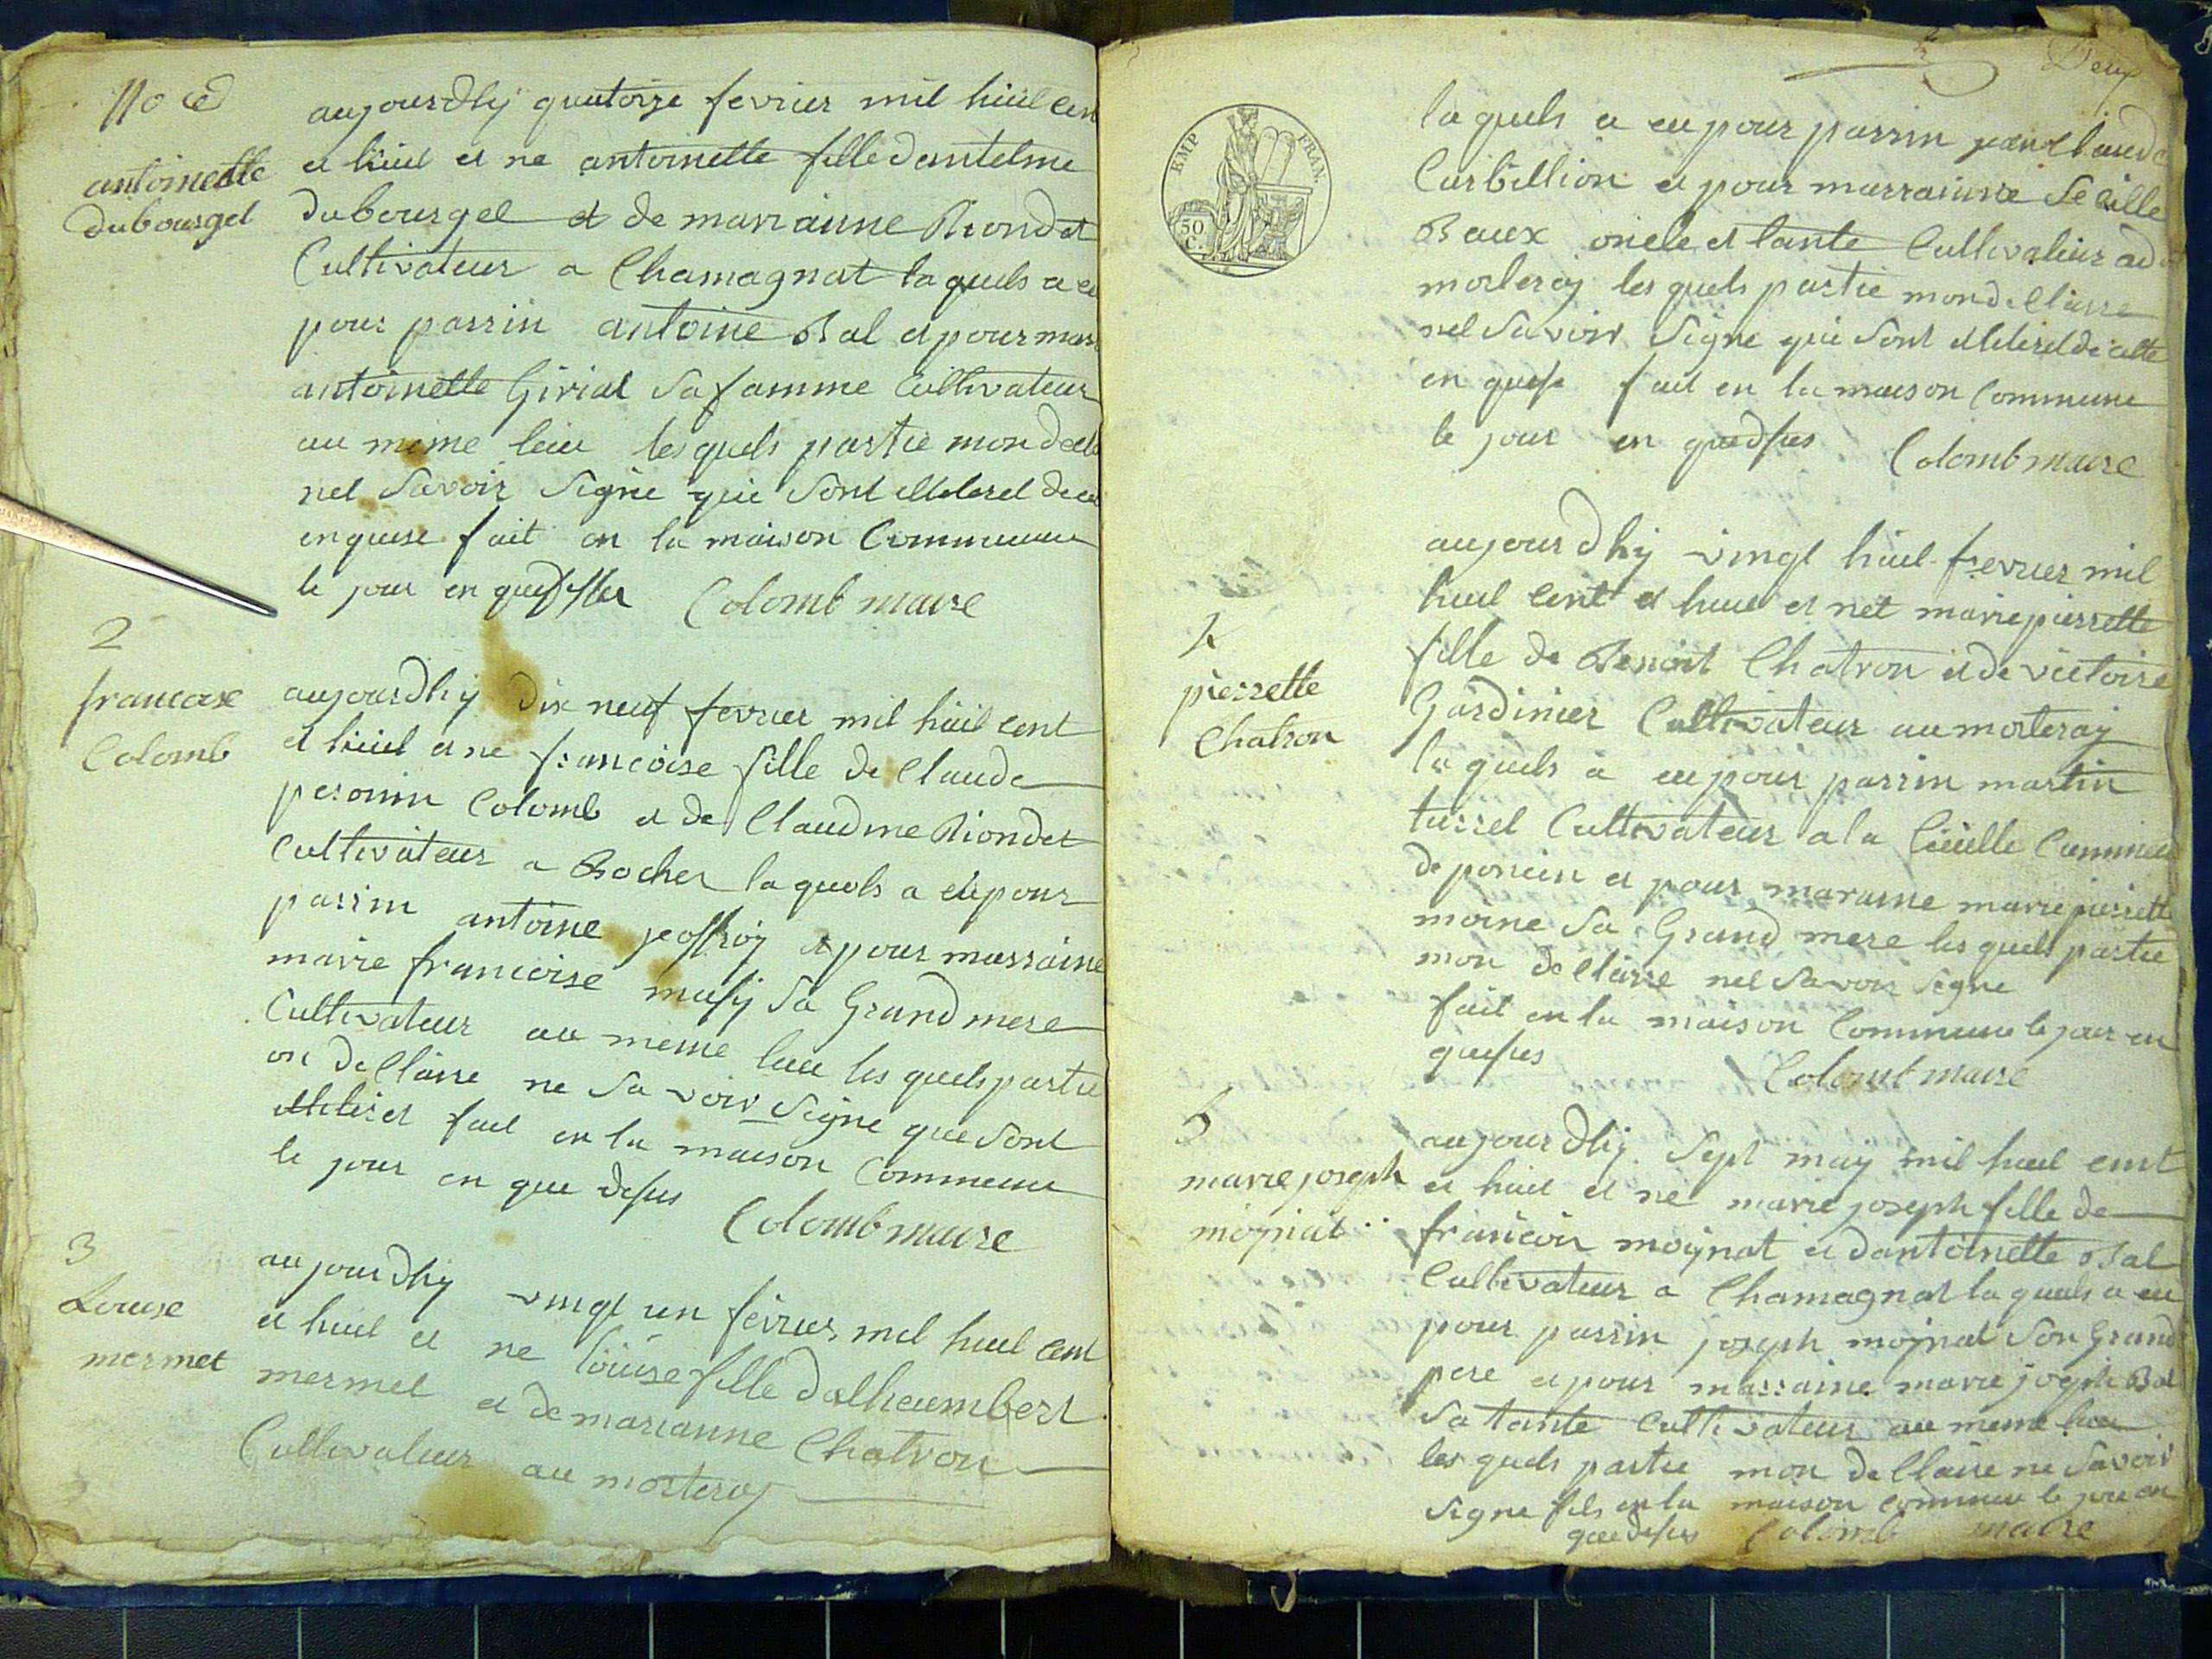 antoinette
dubourgel
aujourdhy quatorze fevrier mil huil cen
et huil et ne antoinette fille dantelme
dubourgel et de marianne Riondet
Cultivateur a Chamagnat laquels a eu
pour parrin antoine Bal et pour mar
antoinette Girial Sa famme Cultivateur
au meme lieu lesquels partie mon decla
nel Savoir Signe que Sont
enquise fait en la maison Commune
le jour en Colomb maire
2
francoise
Colomb
aujourdhy dix neuf fevrier mil huil cent
et huil et ne francoise fille de Claude
peronin Colomb et de Claudine Riondet
Cultivateur a Bocher laquels a eu pour
parrin antoine jeoffroy et pour marraine
marie francoise musy Sa Grand mere
Cultivateur au meme lieu les quels partie
on dellaire ne Sa voir Signe que Sont
fait en la maison Commune
le jour en que desus
Colomb maire
3
Louise
mermet
aujourdhy vingt un fevrier mil huil cent
et huil et ne louise fille dalheumbert
mermet et de marianne Chatron
Cultivateur au morteray
2
Deux
EMP FRAN.
50 C.
la quels a eu pour parrin jean Claude
Curbillion et pour marrainne
Baux oncle et tante Cultivateur
morteray les quels partie mon dellaire
nel Savoir Signe que Sont
en quise fait en la maison Commune
le jour en quedsus Colomb maire
4
pierrette
Chatron
aujourdhy vingt huil fevrier mil
huil cent et huil et net marie pierrette
fille de Benoit Chatron et de victoire
Gardinier Cultivateur au morteray
la quels a eu pour parrin martin
turrel Cultivateur a la Cueille Commune
de poncin et pour maraine marie pierrette
moine Sa Grand mere les quels partie
mon dellaire nel Savoir Signe
fait en la maison Commune le jour en
quesus Colomb maire
5
marie joseph
mojnat
aujourdhy Sept may mil huil cent
et huil et ne marie joseph fille de
francoi mojnat et dantoinette Bal
Cultivateur a Chamagnat la quels a eu
pour parrin joseph mojnat Son Grand
pere et pour marraine marie joseph Bal
Sa tante Cultivateur au meme lieu
les quels partie mon dellaire ne Savoir
Signe en la maison Commune le jour en
que desus Colomb maire